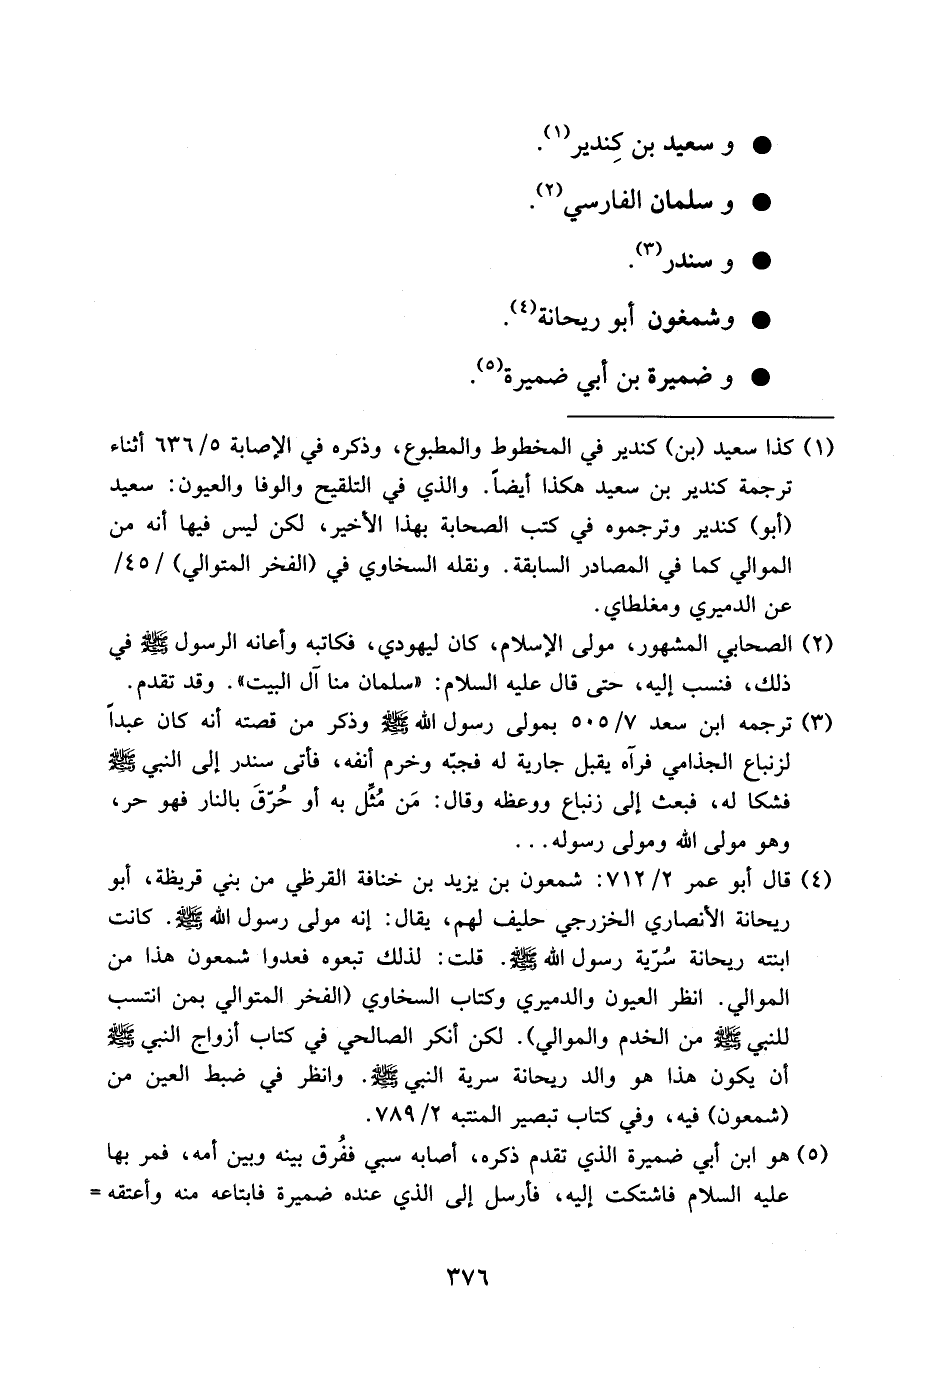 ● و سعيد بن كِندير(١).
● و سلمان الفارسي(٢).
● و سندر(٣).
● وشمغون أبو ريحانة(٤).
● و ضميرة بن أبي ضميرة(٥).
(١) كذا سعيد (بن) كندير في المخطوط والمطبوع، وذكره في الإصابة ٥/ ٦٣٦ أثناء
ترجمة كندير بن سعيد هكذا أيضاً. والذي في التلقيح والوفا والعيون: سعيد
(أبو) كندير وترجموه في كتب الصحابة بهذا الأخير، لكن ليس فيها أنه من
الموالي كما في المصادر السابقة. ونقله السخاوي في (الفخر المتوالي) / ٤٥/
عن الدميري ومغلطاي.
(٢) الصحابي المشهور، مولى الإسلام، كان ليهودي، فكاتبه وأعانه الرسول ﷺ في
ذلك، فنسب إليه، حتى قال عليه السلام: «سلمان منا آل البيت». وقد تقدم.
(٣) ترجمه ابن سعد ٧/ ٥٠٥ بمولى رسول الله ﷺ وذكر من قصته أنه كان عبداً
لزنباع الجذامي فرآه يقبل جارية له فجبّه وخرم أنفه، فأتى سندر إلى النبي ﷺ
فشكا له، فبعث إلى زنباع ووعظه وقال: مَن مُثِّل به أو حُرّقَ بالنار فهو حر،
وهو مولى الله ومولى رسوله...
(٤) قال أبو عمر ٢/ ٧١٢: شمعون بن يزيد بن خنافة القرظي من بني قريظة، أبو
ريحانة الأنصاري الخزرجي حليف لهم، يقال: إنه مولى رسول الله ﷺ. كانت
ابنته ريحانة سُرّية رسول الله ﷺ. قلت: لذلك تبعوه فعدوا شمعون هذا من
الموالي. انظر العيون والدميري وكتاب السخاوي (الفخر المتوالي بمن انتسب
للنبي ﷺ من الخدم والموالي). لكن أنكر الصالحي في كتاب أزواج النبي ﷺ
أن يكون هذا هو والد ريحانة سرية النبي ﷺ. وانظر في ضبط العين من
(شمعون) فيه، وفي كتاب تبصير المنتبه ٢/ ٧٨٩.
(٥) هو ابن أبي ضميرة الذي تقدم ذكره، أصابه سبي ففُرق بينه وبين أمه، فمر بها
عليه السلام فاشتكت إليه، فأرسل إلى الذي عنده ضميرة فابتاعه منه وأعتقه =
٣٧٦